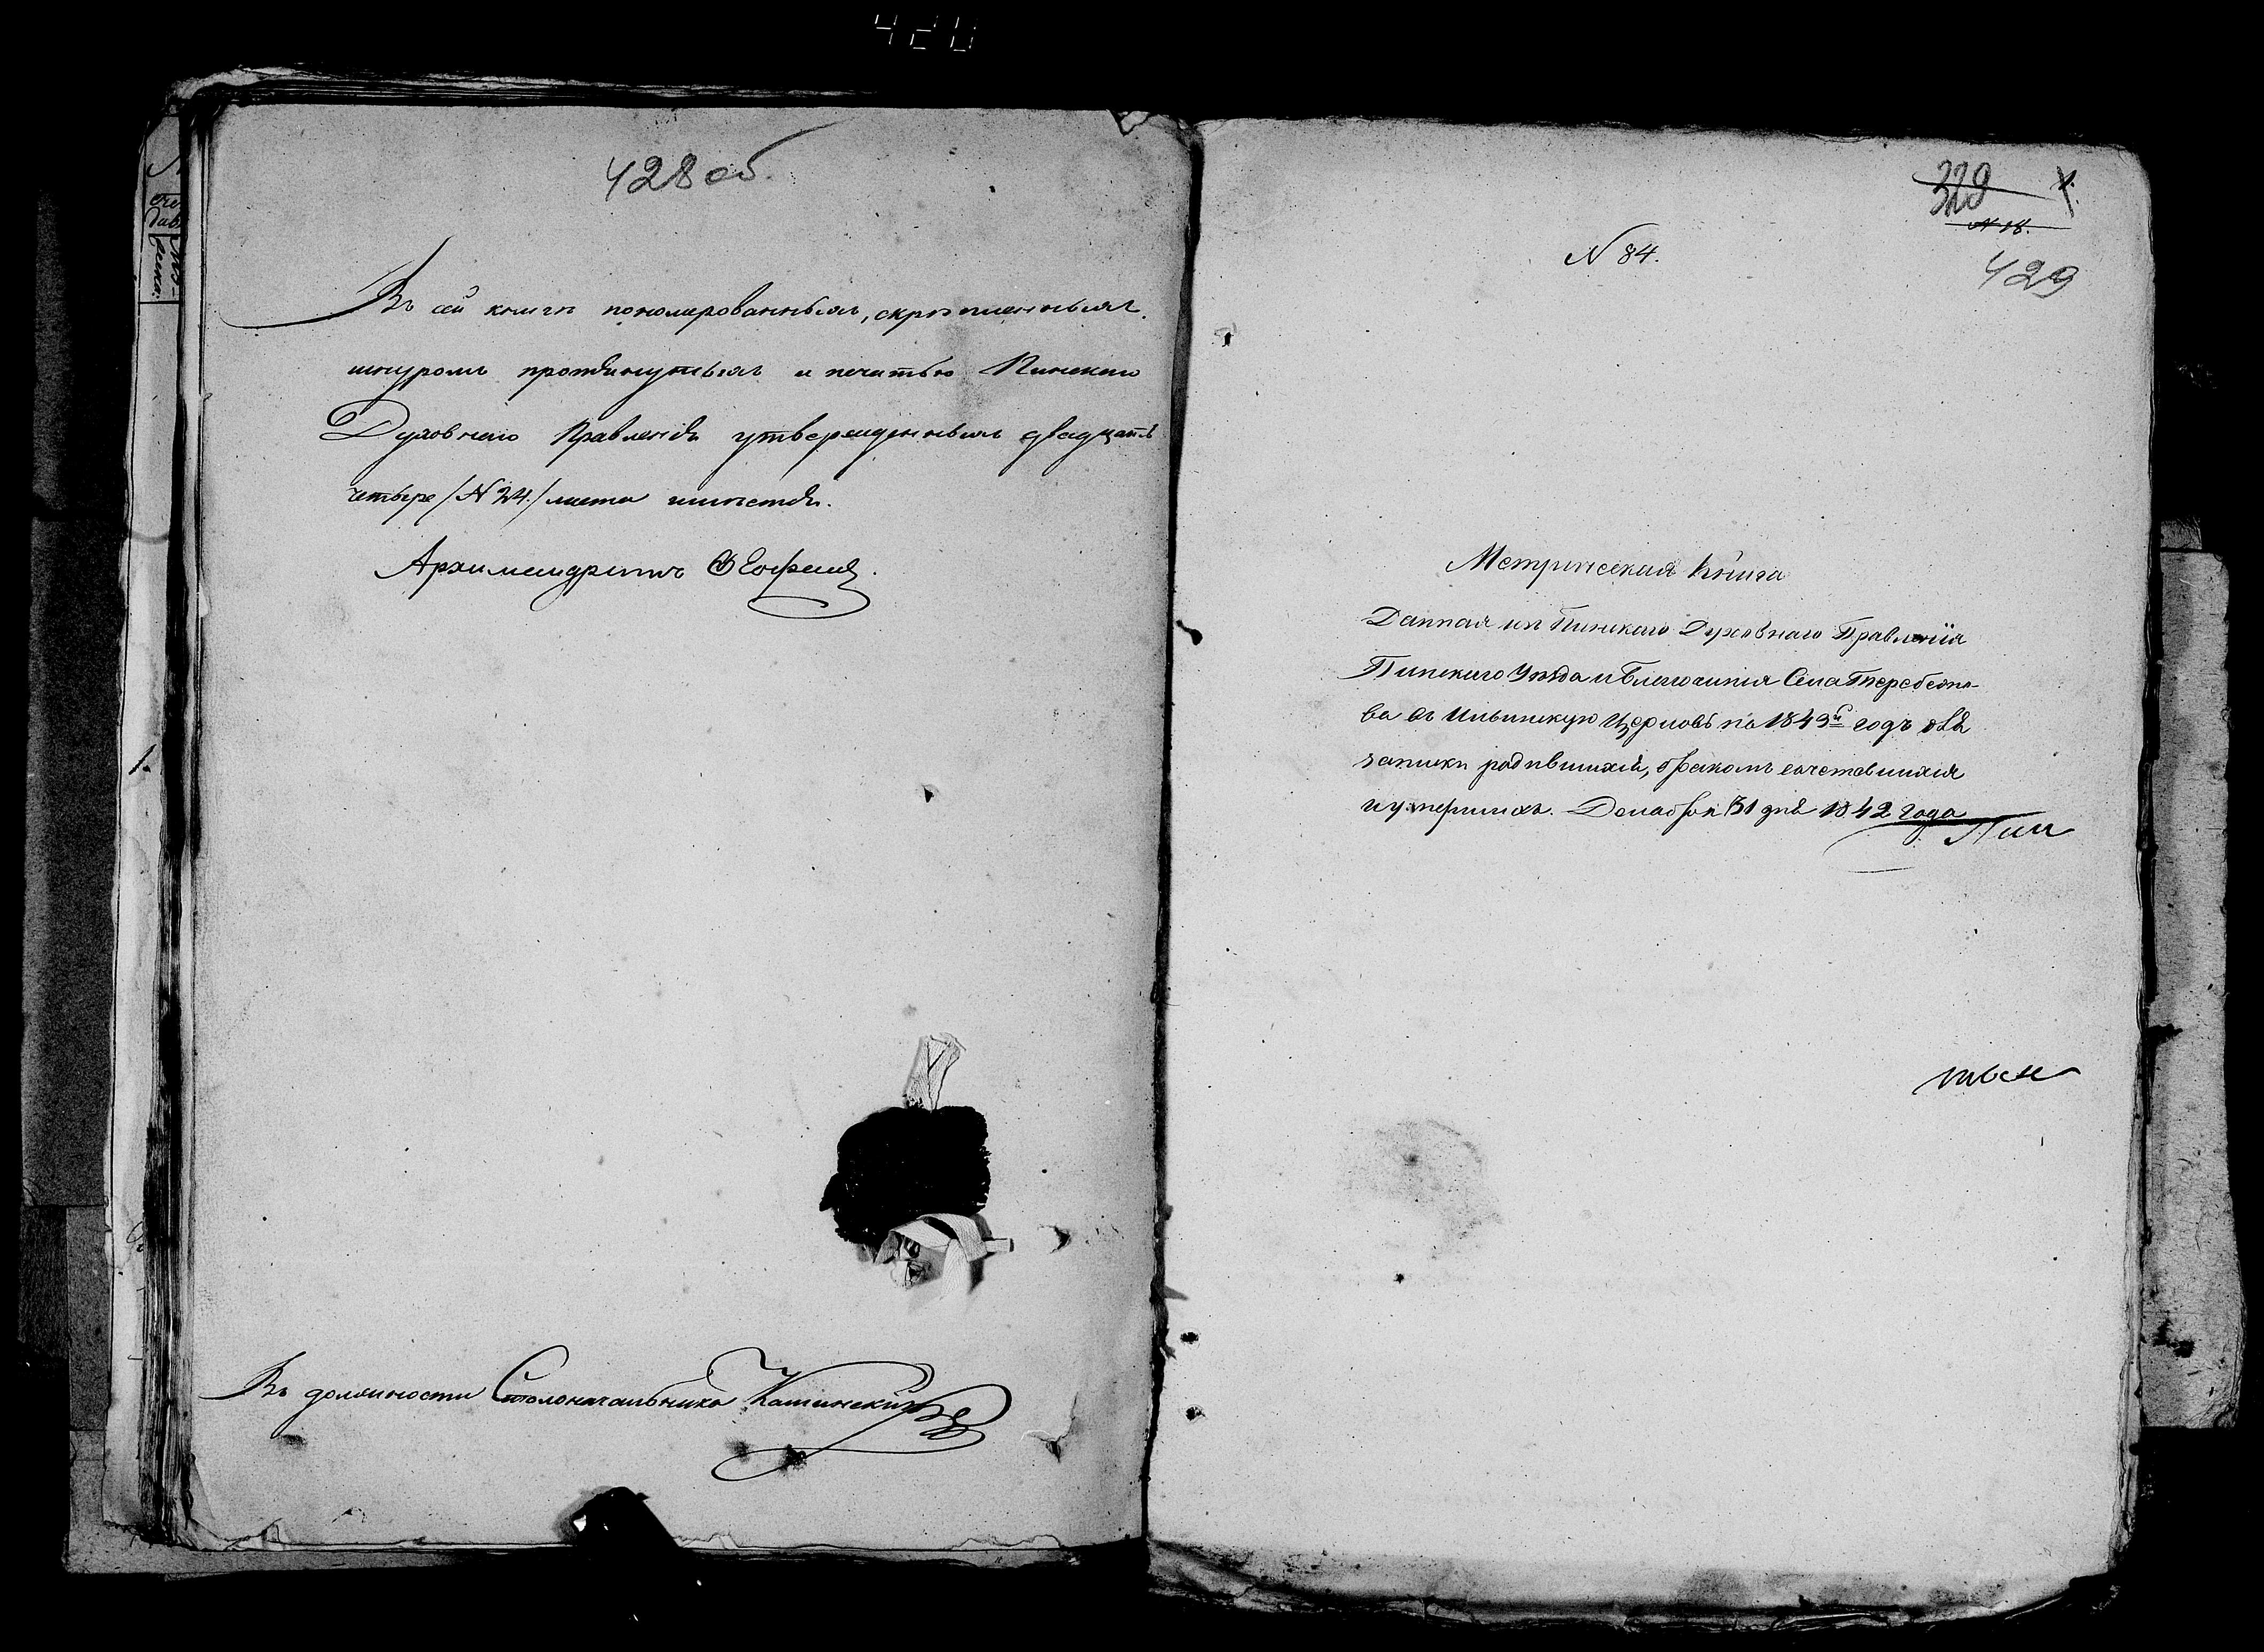 428 об.
Въ сей книгѣ пономерованныхъ, скрѣпленныхъ,
шнуромъ протянутыхъ и печатью Пинскаго
Духовнаго Правленія утвержденныхъ двадцать
четыре /N 24./ листа имѣется.
Архимандритъ
Въ должности Столоначальника
329
1.
N 18.
429
N 84.
Метрическая Книга
Данная изъ Пинскаго Духовнаго Правленія
Пинскаго Уѣзда и Благочинія Села Теребежо-
ва въ Ильинскую Церковь на 1843й годъ для
записки родившихся, бракомъ сочетавшихся
и умершихъ. Декабря 31 дня 1842 года
Пин